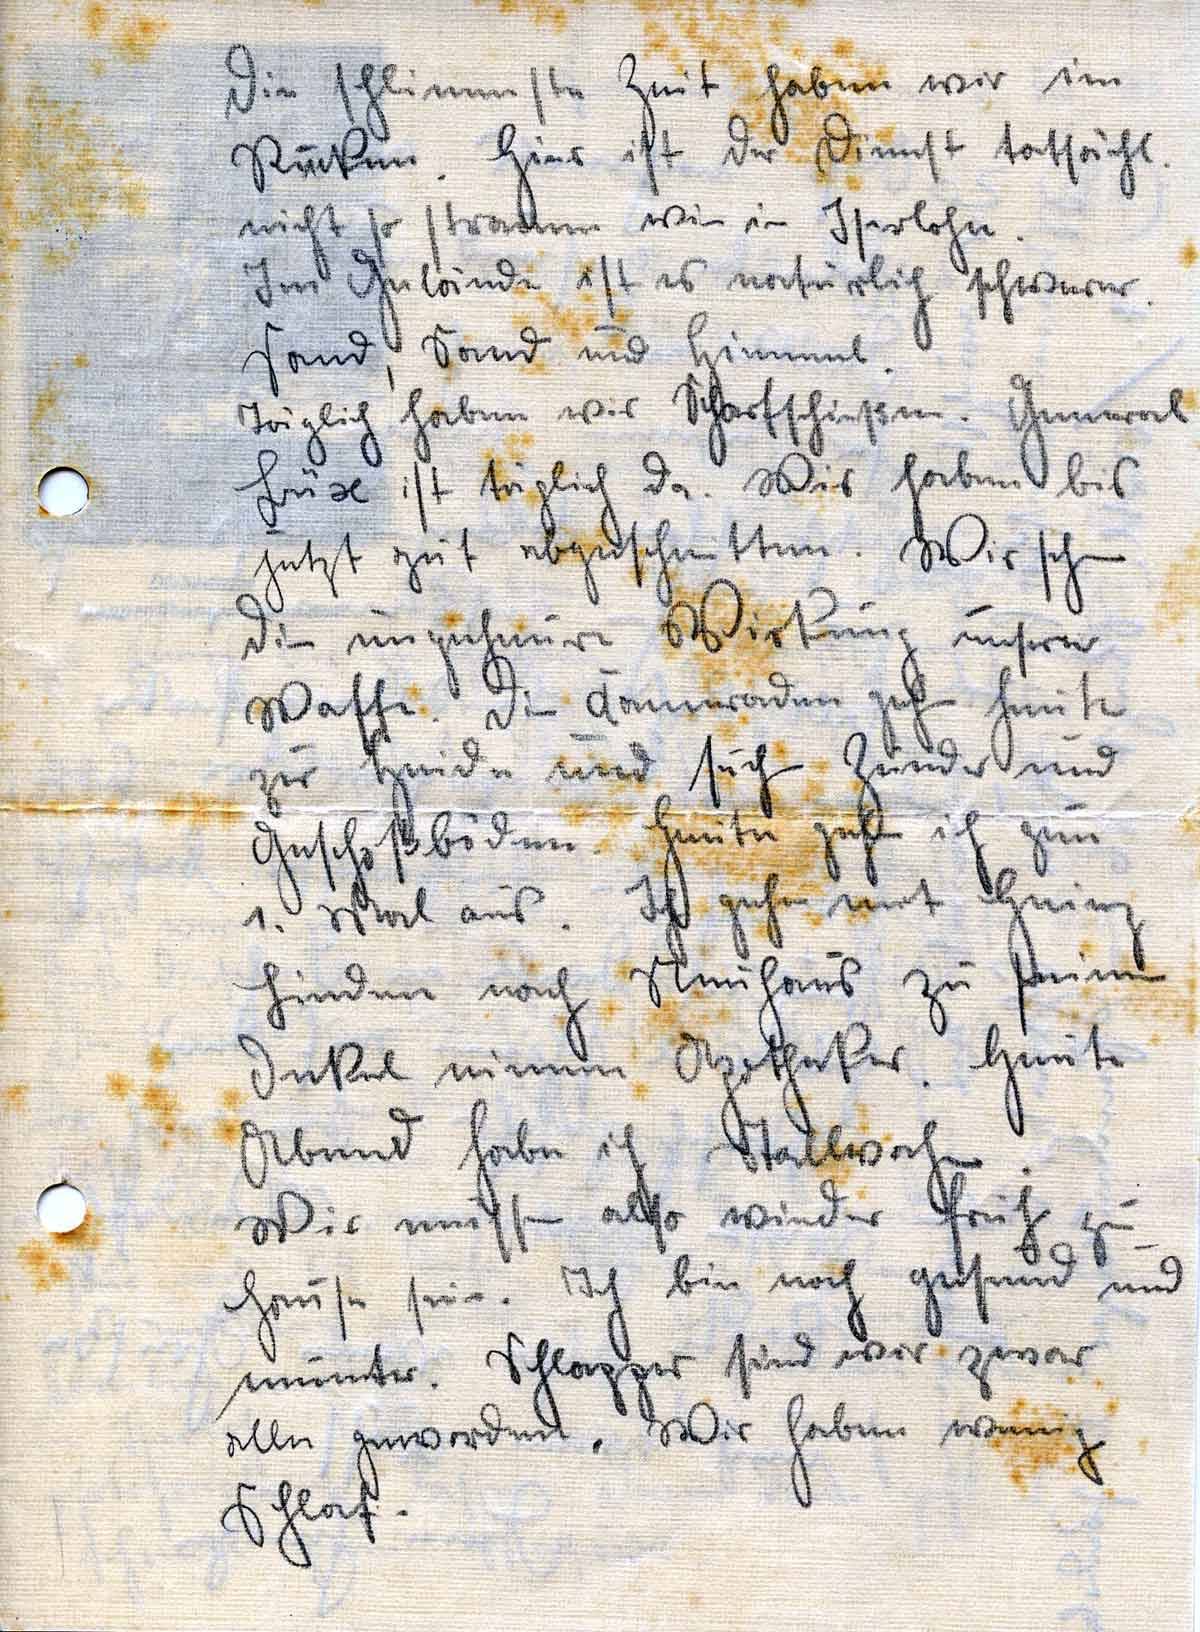 Die schlimmste Zeit haben wir im
Rücken. Hier ist der Dienst tatsächl.
nicht so stramm wie in Iserlohn.
Im Gelände ist es natürlich schwerer.
Sand, Sand und Himmel.
Täglich haben wir Scharfschießen. General
ist täglich da. Wir haben bis
jetzt gut abgeschnitten. Wir sehen
die ungeheure Wirkung unserer
Waffe. Die Kameraden gehen heute
zur Heide und suchen Zünder und
Geschoßböden. Heute gehe ich zum
1. Mal aus. Ich gehe mit Heinz
Linden nach Neuhaus zu seinem
Onkel einem Apotheker. Heute
Abend habe ich Stallwache.
Wir müssen also wieder früh zu
hause sein. Ich bin noch gesund und
munter. Schlapper sind wir zwar
alle geworden. Wir haben wenig
Schlaf.